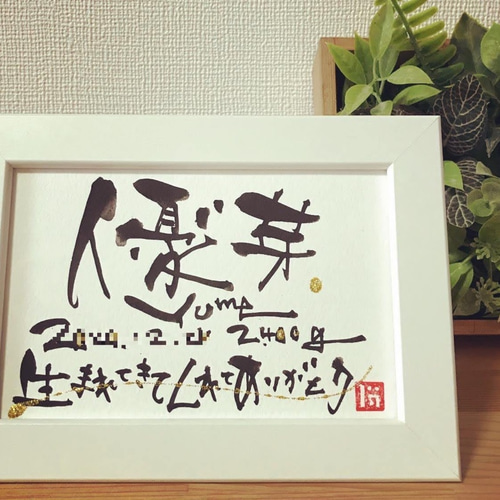 優芽
yume
2400g
生まれてきてくれてありがとう